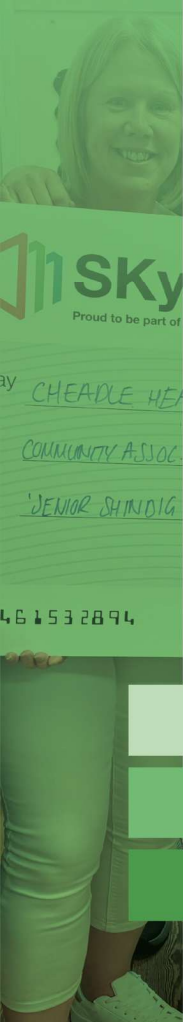 SKy
Proud to be part of
ay CHEADLE HEA
COMMUNITY ASSOC.
'SENIOR SHINDIG
461532894